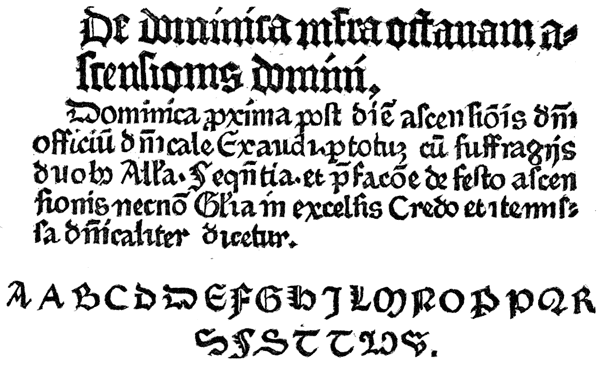 De dominica infra octauam a-
scensionis domini,
Dominica ꝓxima post diē ascensiōis dn̄i
officiū dn̄icale Exaudi. ꝑ totuꝫ cū suffragijs
duob9 Alľa. Seqn̄tia. et p̄facōe de festo ascen
sionis necnō Glľia in excelsis Credo et ite missa-
sa dn̄icaliter dicetur.
A A B C D D E F G H J L M N O P P Q R
S S S T T U V.